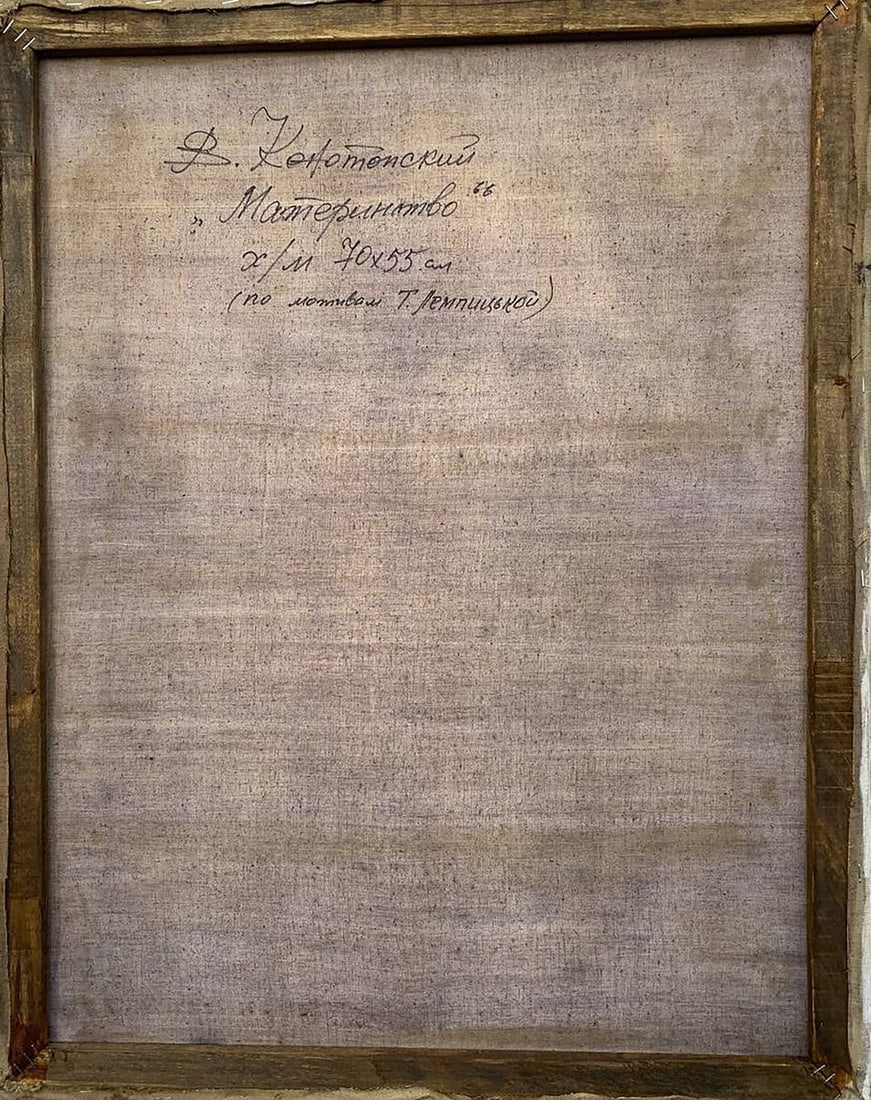 В. Конотопский
„Материнство“
х/м 70х55 см
(по мотивам Т. Лемпицької)